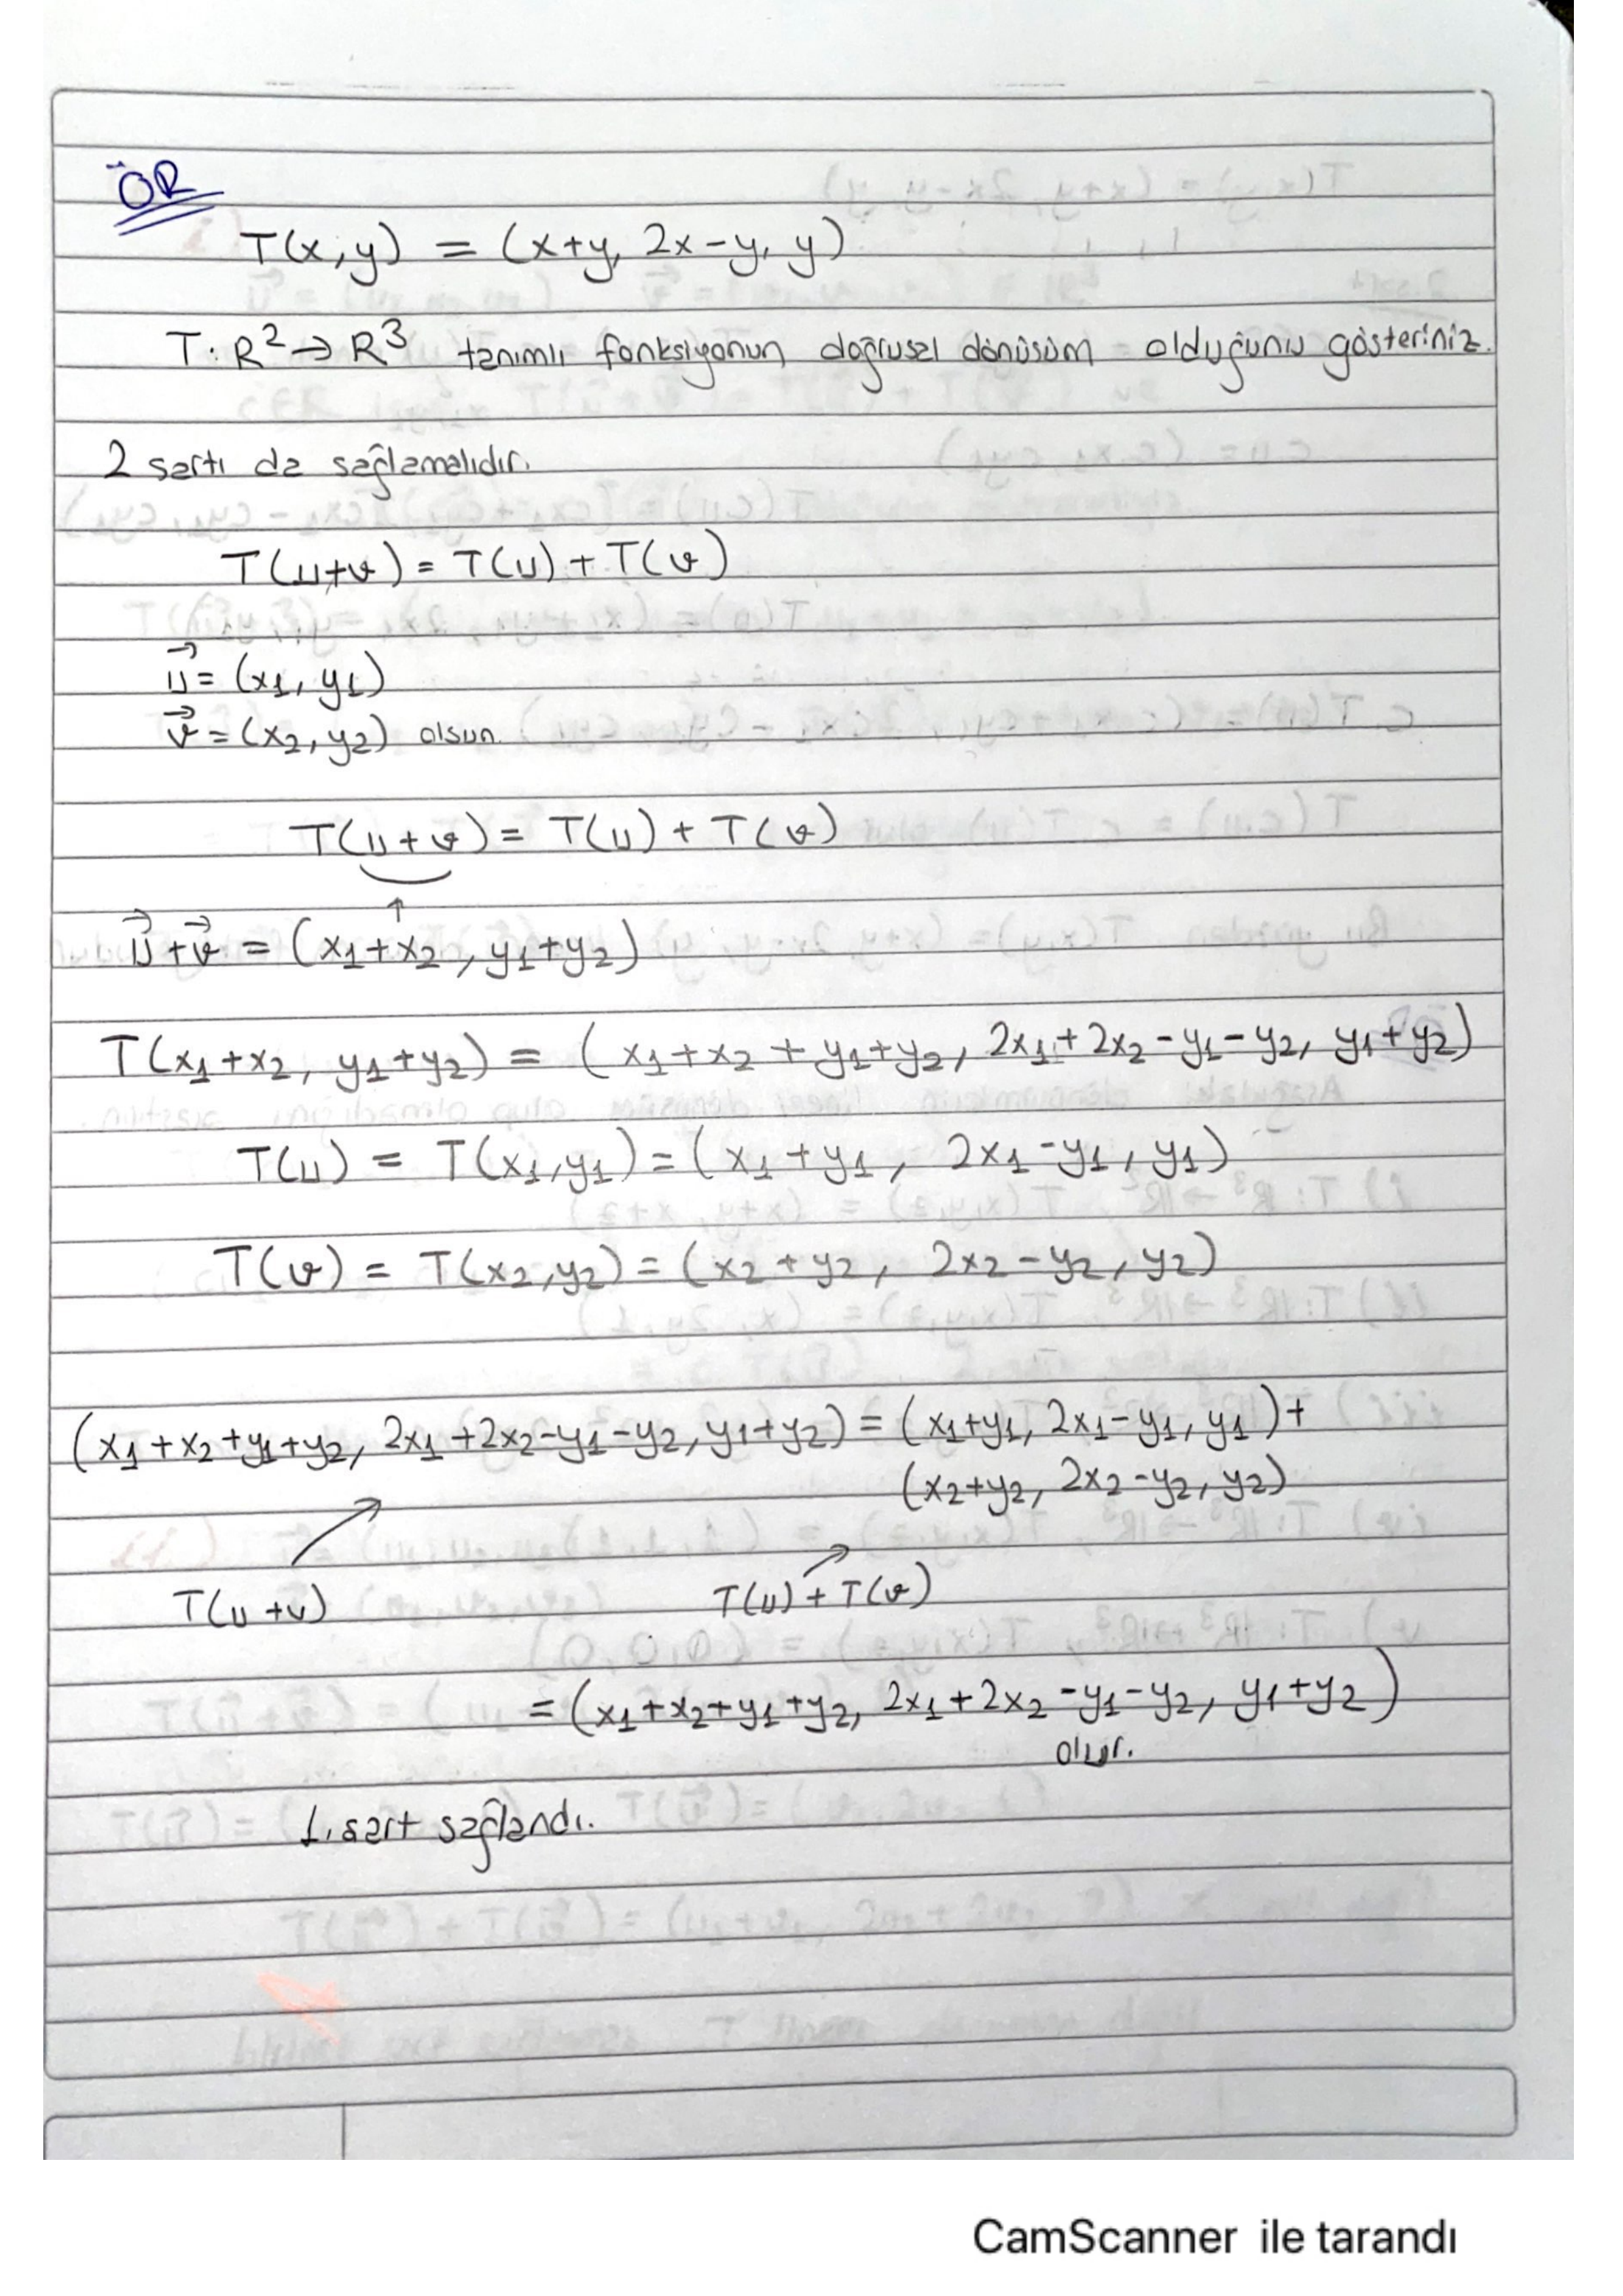 ÖR
T(x,y) = (x+y, 2x-y, y)
T: R² → R³ tanımlı fonksiyonun doğrusal dönüşüm olduğunu gösteriniz.
2 şartı da sağlamalıdır.
T(u+v) = T(u) + T(v)
u⃗ = (x₁, y₁)
v⃗ = (x₂, y₂) olsun.
T(u+v) = T(u) + T(v)
↑
u⃗ + v⃗ = (x₁+x₂, y₁+y₂)
T(x₁+x₂, y₁+y₂) = (x₁+x₂+y₁+y₂, 2x₁+2x₂-y₁-y₂, y₁+y₂)
T(u) = T(x₁,y₁) = (x₁+y₁, 2x₁-y₁, y₁)
T(v) = T(x₂,y₂) = (x₂+y₂, 2x₂-y₂, y₂)
(x₁+x₂+y₁+y₂, 2x₁+2x₂-y₁-y₂, y₁+y₂) = (x₁+y₁, 2x₁-y₁, y₁) +
(x₂+y₂, 2x₂-y₂, y₂)
T(u+v) T(u)+T(v)
= (x₁+x₂+y₁+y₂, 2x₁+2x₂-y₁-y₂, y₁+y₂)
olur.
1. şart sağlandı.
CamScanner ile tarandı